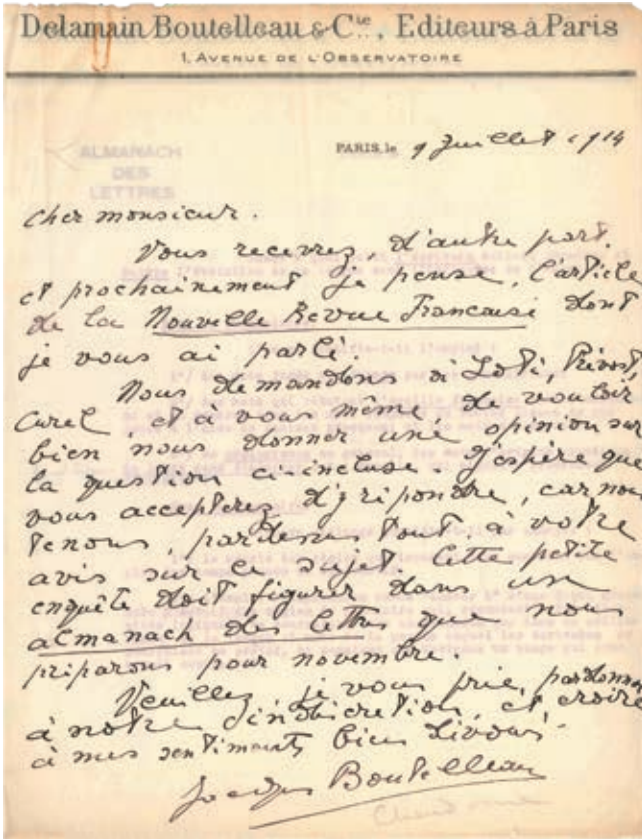 Delamain, Boutelleau & Cie, Editeurs à Paris
1, AVENUE DE L'OBSERVATOIRE
ALMANACH
DES
LETTRES
PARIS, le 9 Juillet 1914
Cher monsieur.
Vous recevrez, d'autre part,
et prochainement je pense, l'article
de la Nouvelle Revue Francaise dont
je vous ai parlé.
Nous demandons à Loti, Prévost,
Curel, et à vous même de vouloir
bien nous donner une opinion sur
la question ci-incluse. J'espère que
vous accepterez d'y répondre, car nou
tenons, pardessus tout, à votre
avis sur ce sujet. Cette petite
enquête doit figurer dans un
almanach des lettres que nous
préparons pour novembre.
Veuillez, je vous prie, pardonner
à notre indiscretion, et croire
à mes sentiments bien dévoués.
Jacques Boutelleau